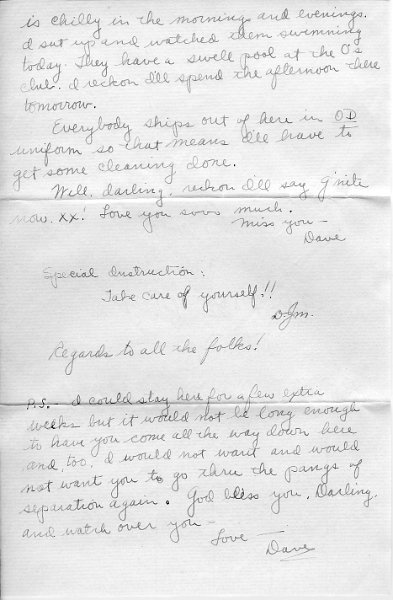 is chilly in the mornings and evenings.
I sat up and watched them swimming
today. They have a swell pool at the O's
club. I reckon I'll spend the afternoon there
tomorrow.
Everybody ships out of here in OD
uniform so that means I'll have to
get some cleaning done.
Well, darling, reckon I'll say g'nite
now. XX! Love you sooo much.
Miss you —
Dave
Special Instruction:
Take care of yourself!!
Regards to all the folks!
P.S. - I could stay here for a few extra
weeks but it would not be long enough
to have you come all the way down here
and, too, I would not want and would
not want you to go thru the pangs of
separation again. God bless you, Darling,
and watch over you —
Love —
Dave